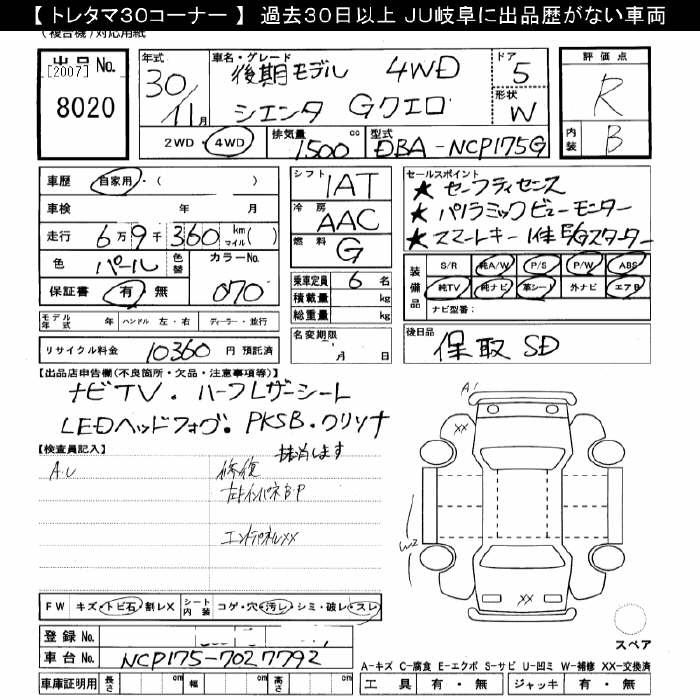 【トレタマ30コーナー】 過去30日以上 JU岐阜に出品歴がない車両
(複合機)対応用紙
出品 No. [2007] 8020
年式 30/11月
車名・グレード 後期モデル 4WD
シエンタ Gクエロ
ドア 5
形状 W
評価点 R
内装 B
2WD・4WD 排気量 1500 cc 型式 DBA-NCP175G
車歴 自家用・( )
車検 年 月
走行 6万9千360 km マイル( )
色 パール 色替 カラーNo. 070
保証書 有・無
シフト 1AT
冷房 AAC
燃料 G
乗車定員 6 名
積載量 kg
総重量 kg
セールスポイント
★セーフティセンス
★パノラミックビューモニター
★スマートキー 1体 E/Gスターター
装備品 S/R 純A/W P/S P/W ABS
純TV 純ナビ 革シート 外ナビ エアB
ナビ型番:
モデル年式 年 ハンドル 左・右 ディーラー・並行
名変期限 月 日
後日品 保取SD
リサイクル料金 10360 円 預託済
【出品店申告欄(不良箇所・欠品・注意事項等)】
ナビTV.ハーフレザーシート
LEDヘッドフォグ.PKSB.クリソナ
【検査員記入】 抹消します
A.U 修復
左トインパネB.P
エンドパネルXX
A1
XX
W2
XX
スペア
FW キズ・トビ石・割レX シート内装 コゲ・穴・汚レ・シミ・破レ・スレ
登録 No.
車台 No. NCP175-7027792
車庫証明用 長さ cm 幅 cm 高さ cm
A-キズ C-腐食 E-エクボ S-サビ U-凹ミ W-補修 XX-交換済
工具 有・無 ジャッキ 有・無